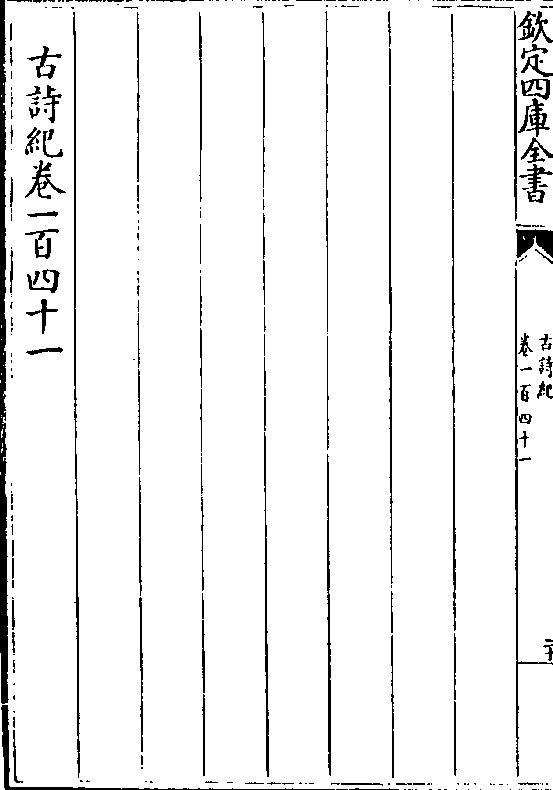 欽定四庫全書
古詩紀
卷一百四十一
古詩紀卷一百四十一